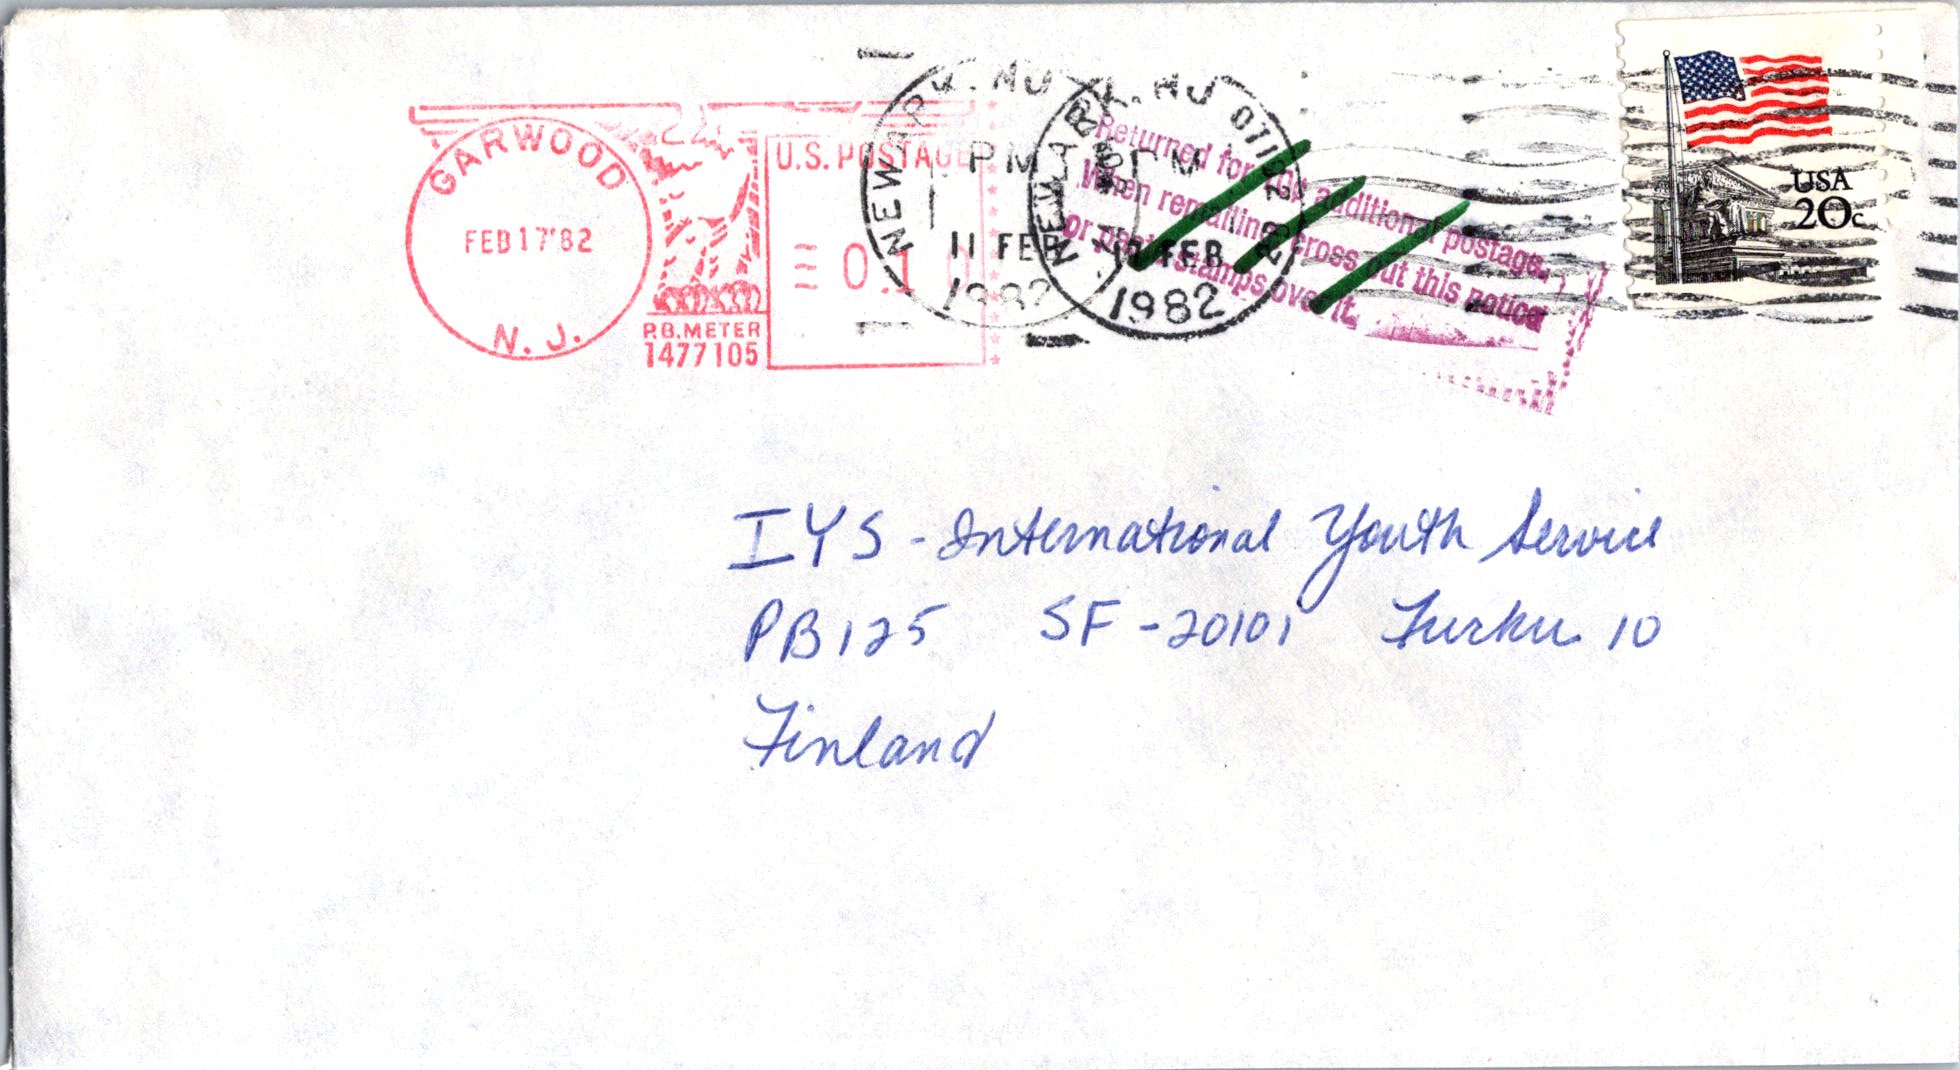 GARWOOD
N. J.
FEB 17 '82
P.B. METER
1477105
U.S. POSTAGE
NEWARK, NJ
PM
11 FEB
1982
NEWARK, NJ 071
PM
FEB
1982
Returned for additional postage.
When remailing cross out this notice
or paste stamps over it.
USA
20c
IYS - International Youth Service
PB 125 SF - 20101 Turku 10
Finland